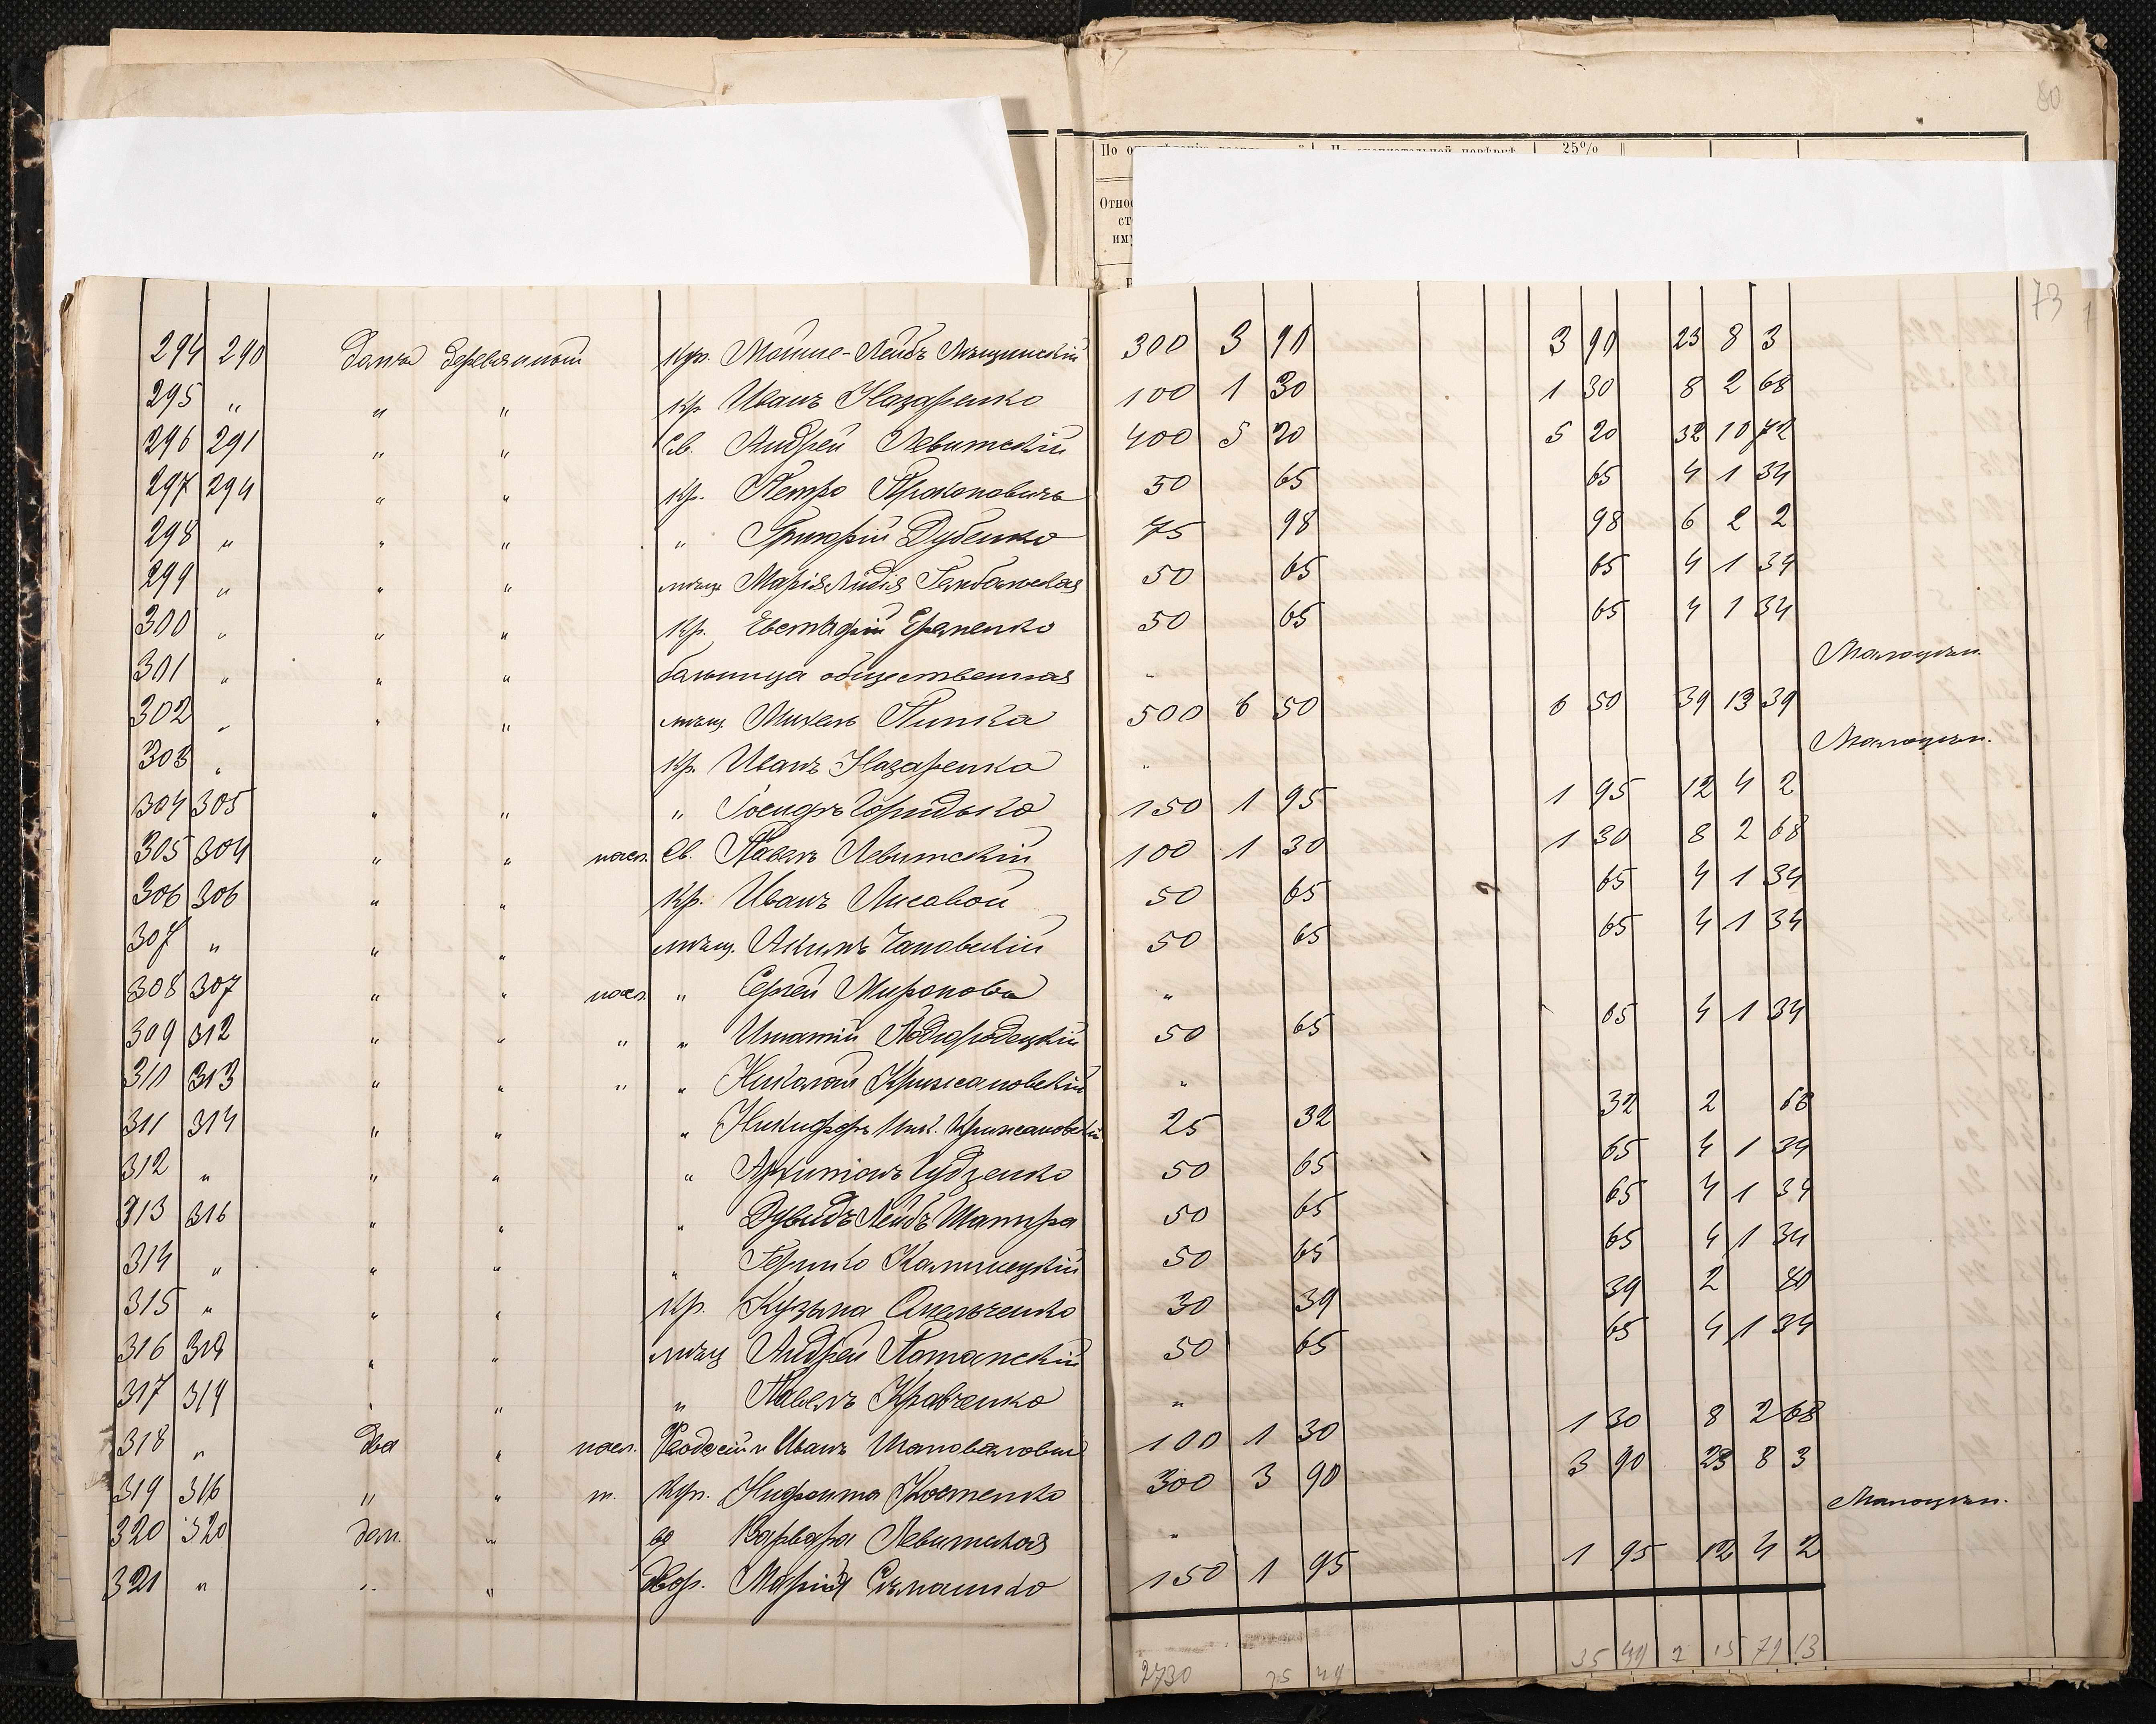 80
25%
По
Отно
ст
им
73
294 290 Домъ деревянный Куп. Мойше-Лейбъ 300 3 90 3 90 23 8 3
295 " " " Кр. Иванъ Назаренко 100 1 30 1 30 8 2 68
296 291 " " Св. Андрей Левитскій 400 5 20 5 20 32 10 72
297 294 " " Кр. Петро Прокоповичъ 50 65 65 4 1 34
298 " " " " Григорій Дубенко 75 98 98 6 2 2
299 " " " мѣщ. Марія Лидія 50 65 65 4 1 34
300 " " " Кр. Евстафій 50 65 65 4 1 34
301 " " " больница общественная " Малоцѣн.
302 " " " мѣщ. Михель Пинка 500 6 50 6 50 39 13 39
303 " Кр. Иванъ Назаренко " Малоцѣн.
304 305 " " " Іосифъ 150 1 95 1 95 12 4 2
305 304 " " насл. Св. Павелъ Левитскій 100 1 30 1 30 8 2 68
306 306 " " Кр. Иванъ Лисавой 50 65 65 4 1 34
307 " " " мѣщ. Акимъ 50 65 65 4 1 34
308 307 " " насл. " Сергей Миронова "
309 312 " " " " Игнатій Подгородецкій 50 65 65 4 1 34
311 313 " " " " Николай Крижановскій "
311 314 " " " Никифоръ Ник. Крижановскій 25 32 32 2 68
312 " " " " Гудзенко 50 65 65 4 1 34
313 316 " " " Дувидъ Лейбъ Шапира 50 65 65 4 1 34
314 " " " " Гершко Калницкій 50 65 65 4 1 34
315 " " " Кр. Кузьма Омельченко 30 39 39 2 80
316 319 " " мѣщ Андрей Потапскій 50 65 65 4 1 34
317 319 " " " Павелъ Кравченко "
318 " два " насл. Феодосій и Иванъ Шаповаловы 100 1 30 1 30 8 2 68
319 316 " " " Куп. Костенко 300 3 90 3 90 23 8 3
320 320 дом. " Варвара Левитская " Малоцѣн.
321 " " " двор. Марія 150 1 95 1 95 12 4 2
2730 35 49 35 49 2 15 71 13